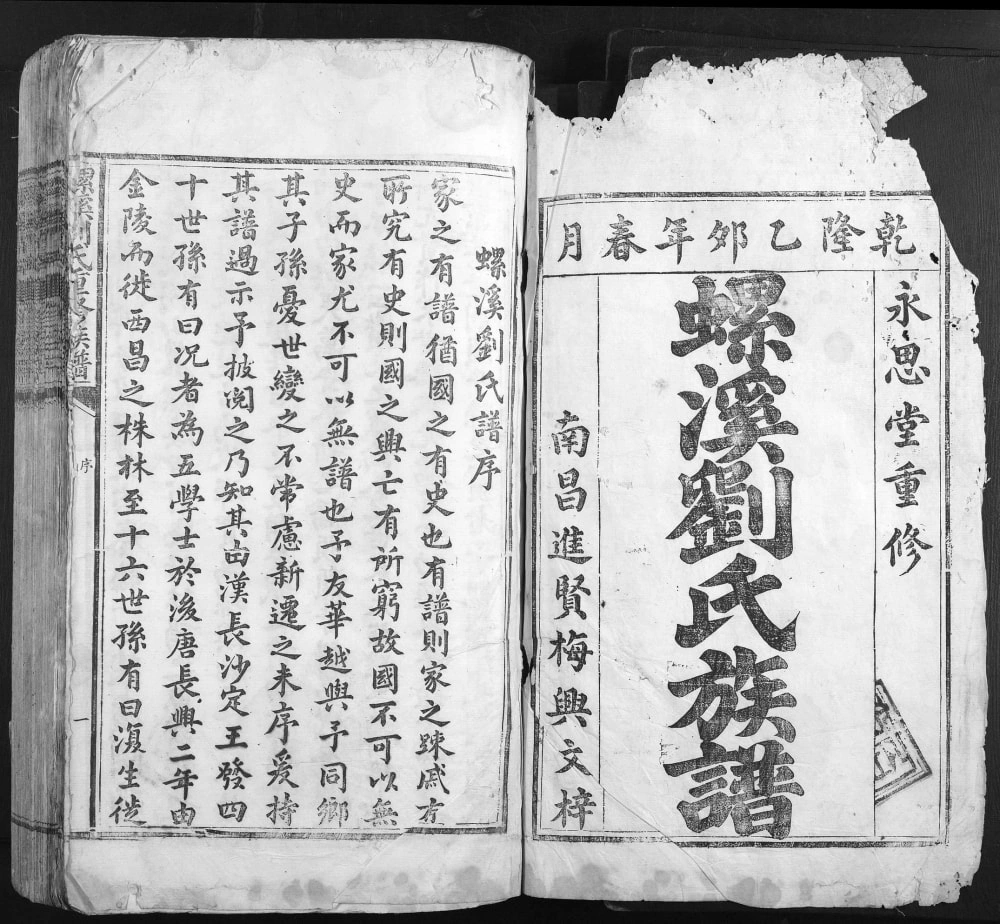 乾隆乙夘年春月
永思堂重修
螺溪劉氏族譜
南昌進賢梅興文梓
螺溪劉氏譜序
家之有譜猶國之有史也有譜則家之踈戚有
所究有史則國之興亡有所窮故國不可以無
史而家尤不可以無譜也予友華越與予同鄉
其子孫憂世變之不常慮新遷之未序爰持
其譜過示予披閱之乃知其由漢長沙定王發四
十世孫有曰况者為五學士於後唐長興二年由
金陵而徙西昌之株林至十六世孫有曰復生徙
螺溪劉氏重修族譜
序
一